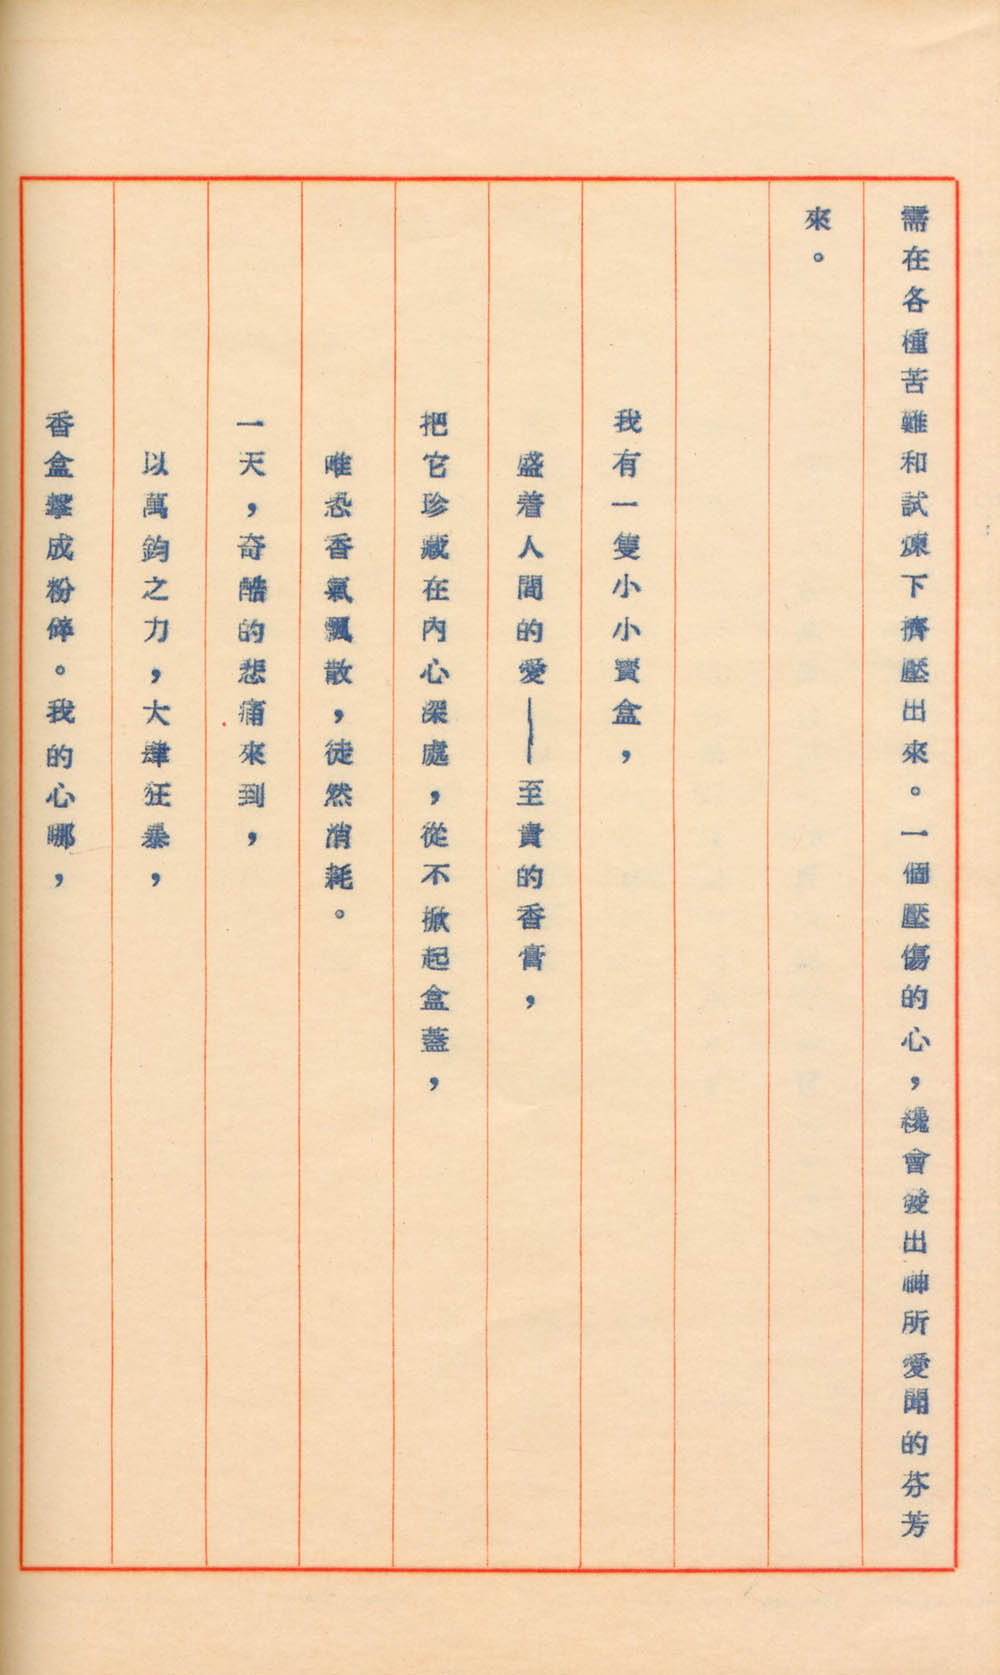 需在各種苦難和試煉下擠壓出來。一個壓傷的心，纔會發出神所愛聞的芬芳
來。
我有一隻小小寶盒，
盛着人間的愛——至貴的香膏，
把它珍藏在內心深處，從不掀起盒蓋，
唯恐香氣飄散，徒然消耗。
一天，奇酷的悲痛來到，
以萬鈞之力，大肆狂暴，
香盒擊成粉碎。我的心哪，